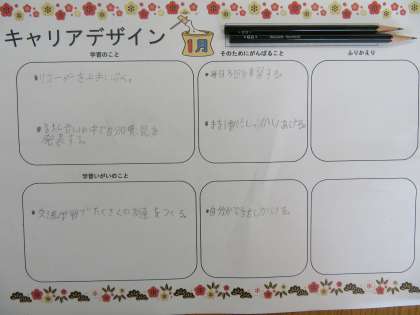 キャリアデザイン
1月
学習のこと
そのためにがんばること
ふりかえり
・リコーダーを上手にふく。
・毎日3回は練習する。
・話し合いの中で自分の意見を
発表する。
・まず手をしっかりあげる。
学習いがいのこと
・交流学習でたくさんの友達をつくる。
・自分から話しかける。